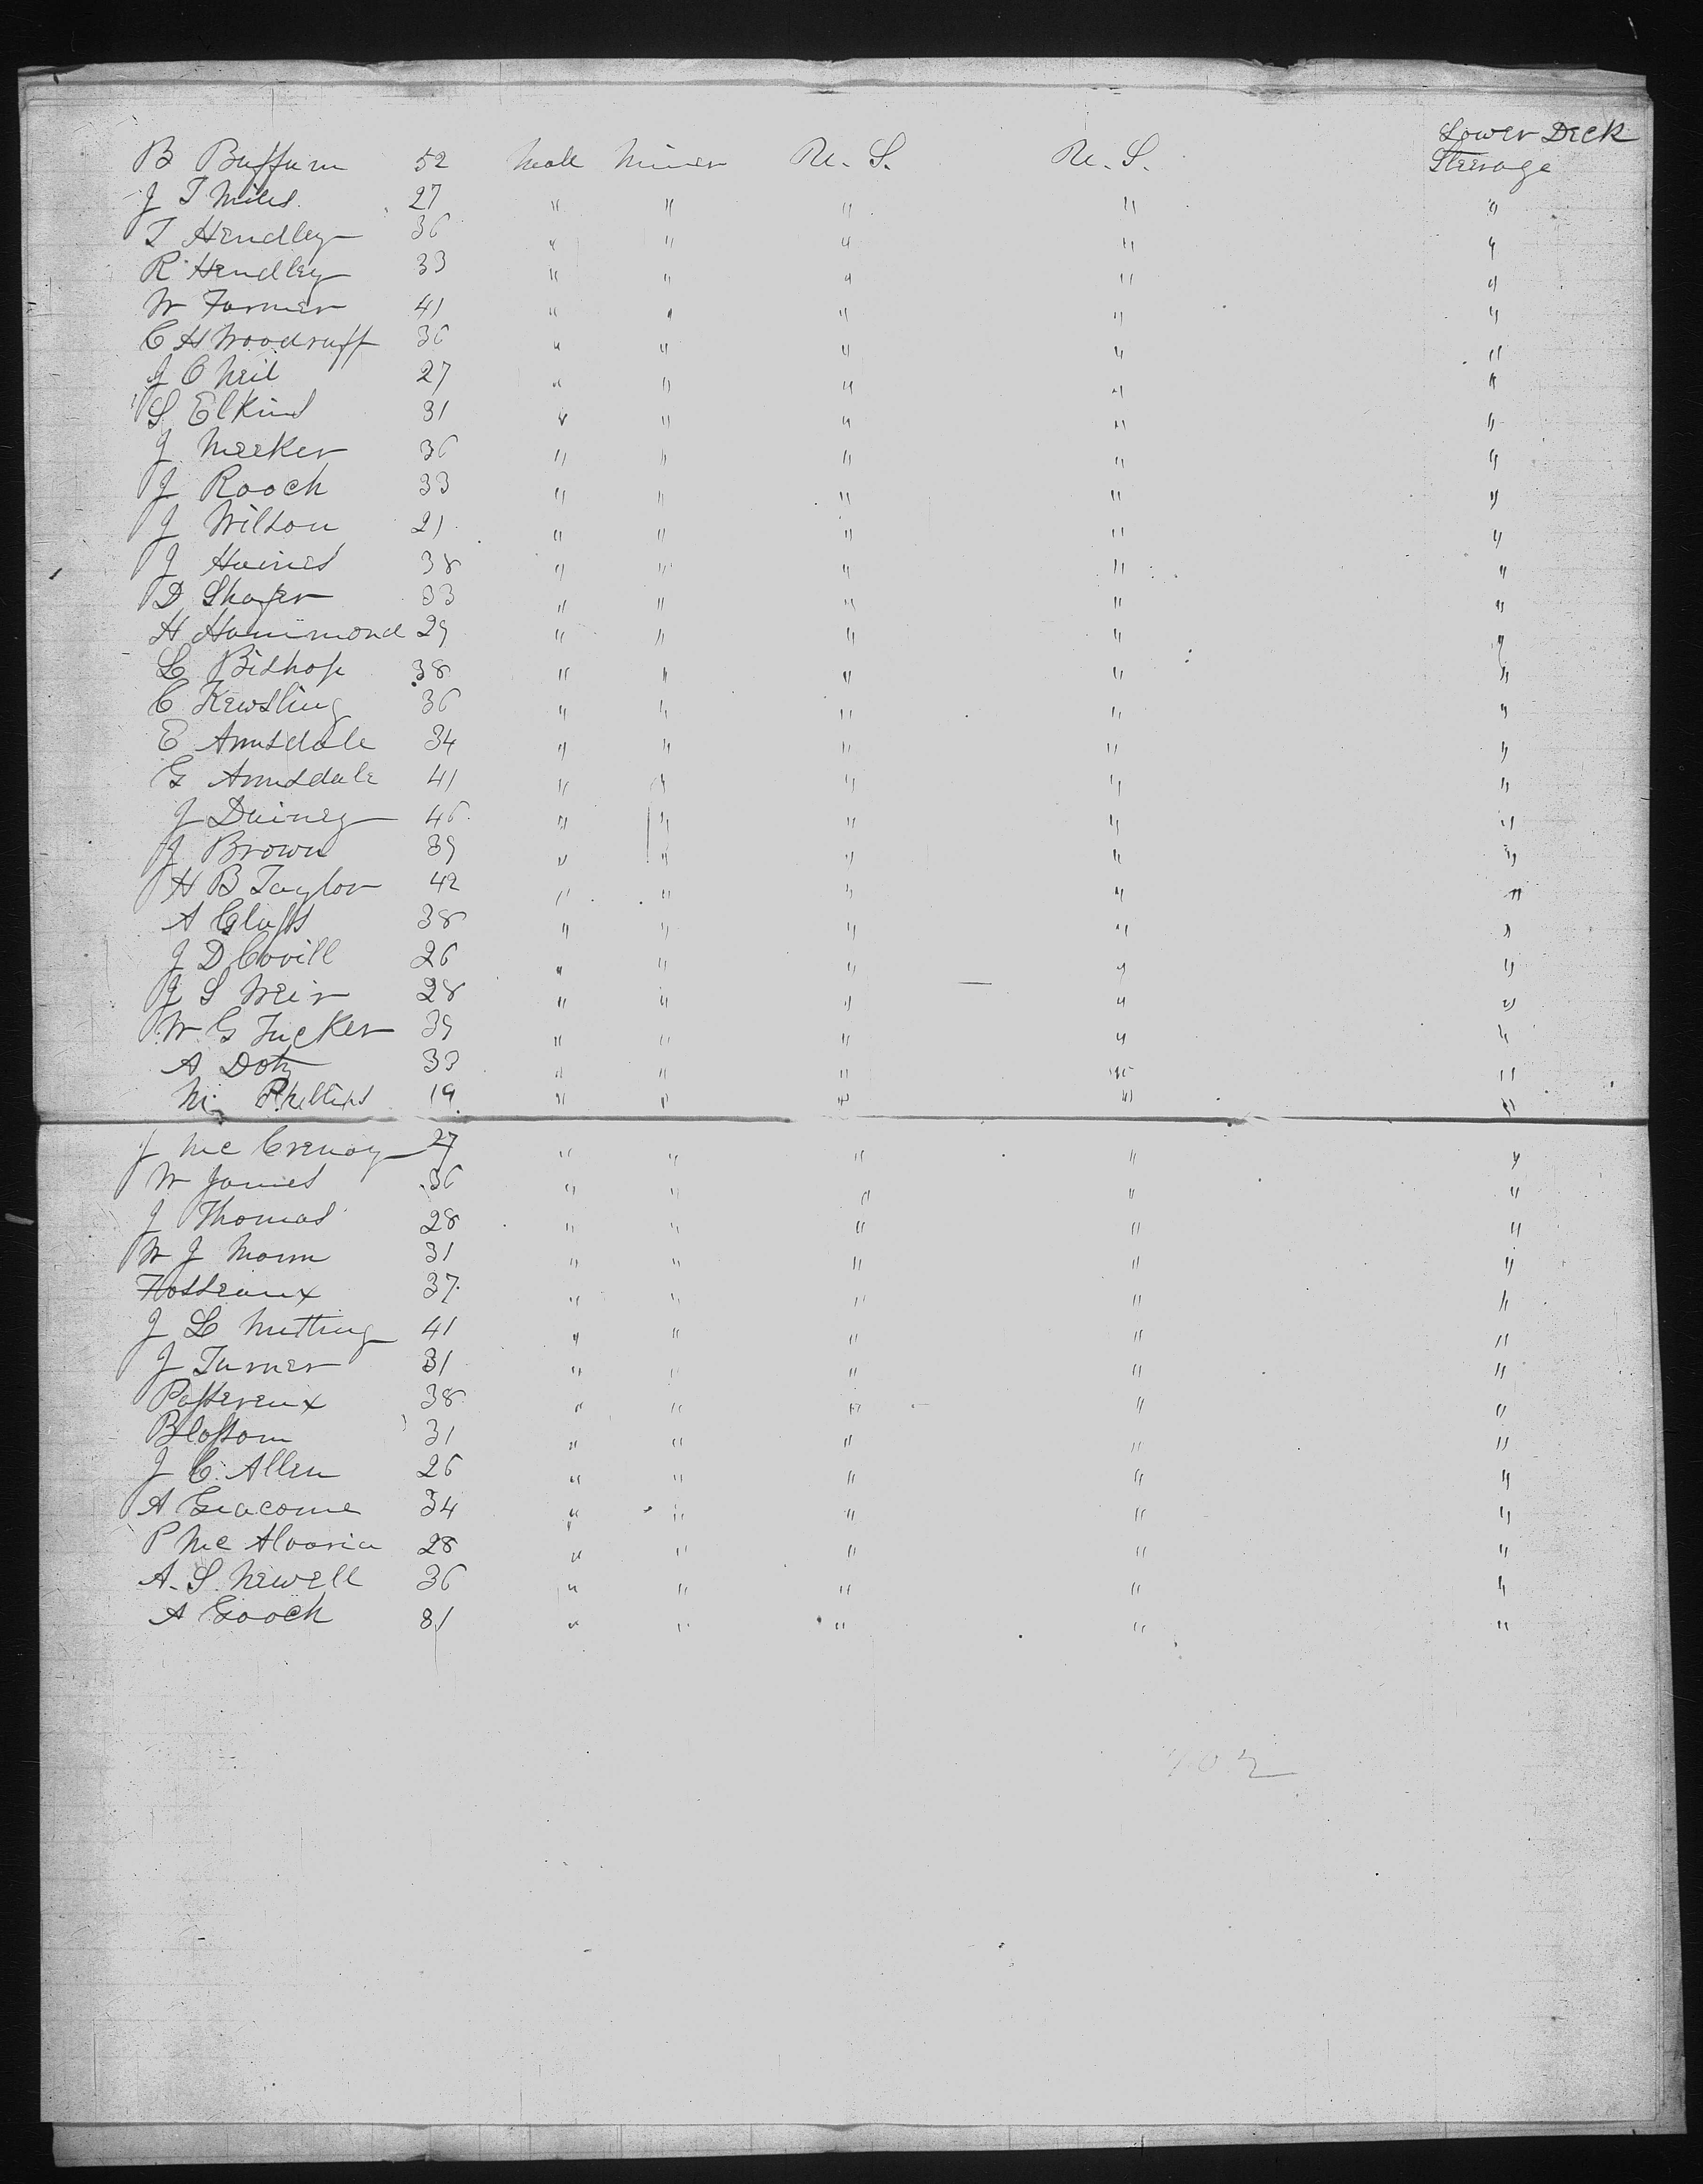 Lower Deck
B Buffum 52 Male Miner U. S. U. S. Steerage
J T Miles 27 " " " " "
T Hendley 36 " " " " "
R Hendley 33 " " " " "
W Farmer 41 " " " " "
C H Woodruff 36 " " " " "
J C Neil 27 " " " " "
S Elkins 31 " " " " "
J Meeker 36 " " " " "
J Rooch 33 " " " " "
J Wilson 21 " " " " "
J Haines 38 " " " " "
D Shafer 33 " " " " "
H Hammond 29 " " " " "
L Bishop 38 " " " " "
C Kewsling 36 " " " " "
E Annsdale 34 " " " " "
G Annsdale 41 " " " " "
J Dainey 46 " " " " "
J Brown 39 " " " " "
H B Taylor 42 " " " " "
A Glass 38 " " " " "
J D Covill 26 " " " " "
J S Weir 28 " " " " "
W G Tucker 39 " " " " "
A Doty 33 " " " " "
M Phillips 19 " " " " "
J Mc Crenoy 27 " " " " "
W James 36 " " " " "
J Thomas 28 " " " " "
W J Morm 31 " " " " "
Hosseaux 37 " " " " "
J L Nutting 41 " " " " "
J Turner 31 " " " " "
Passereux 38 " " " " "
Blossom 31 " " " " "
J C Allen 26 " " " " "
A Giacome 34 " " " " "
P Mc Alvaria 28 " " " " "
A. S. Newell 36 " " " " "
A Gooch 31 " " " " "